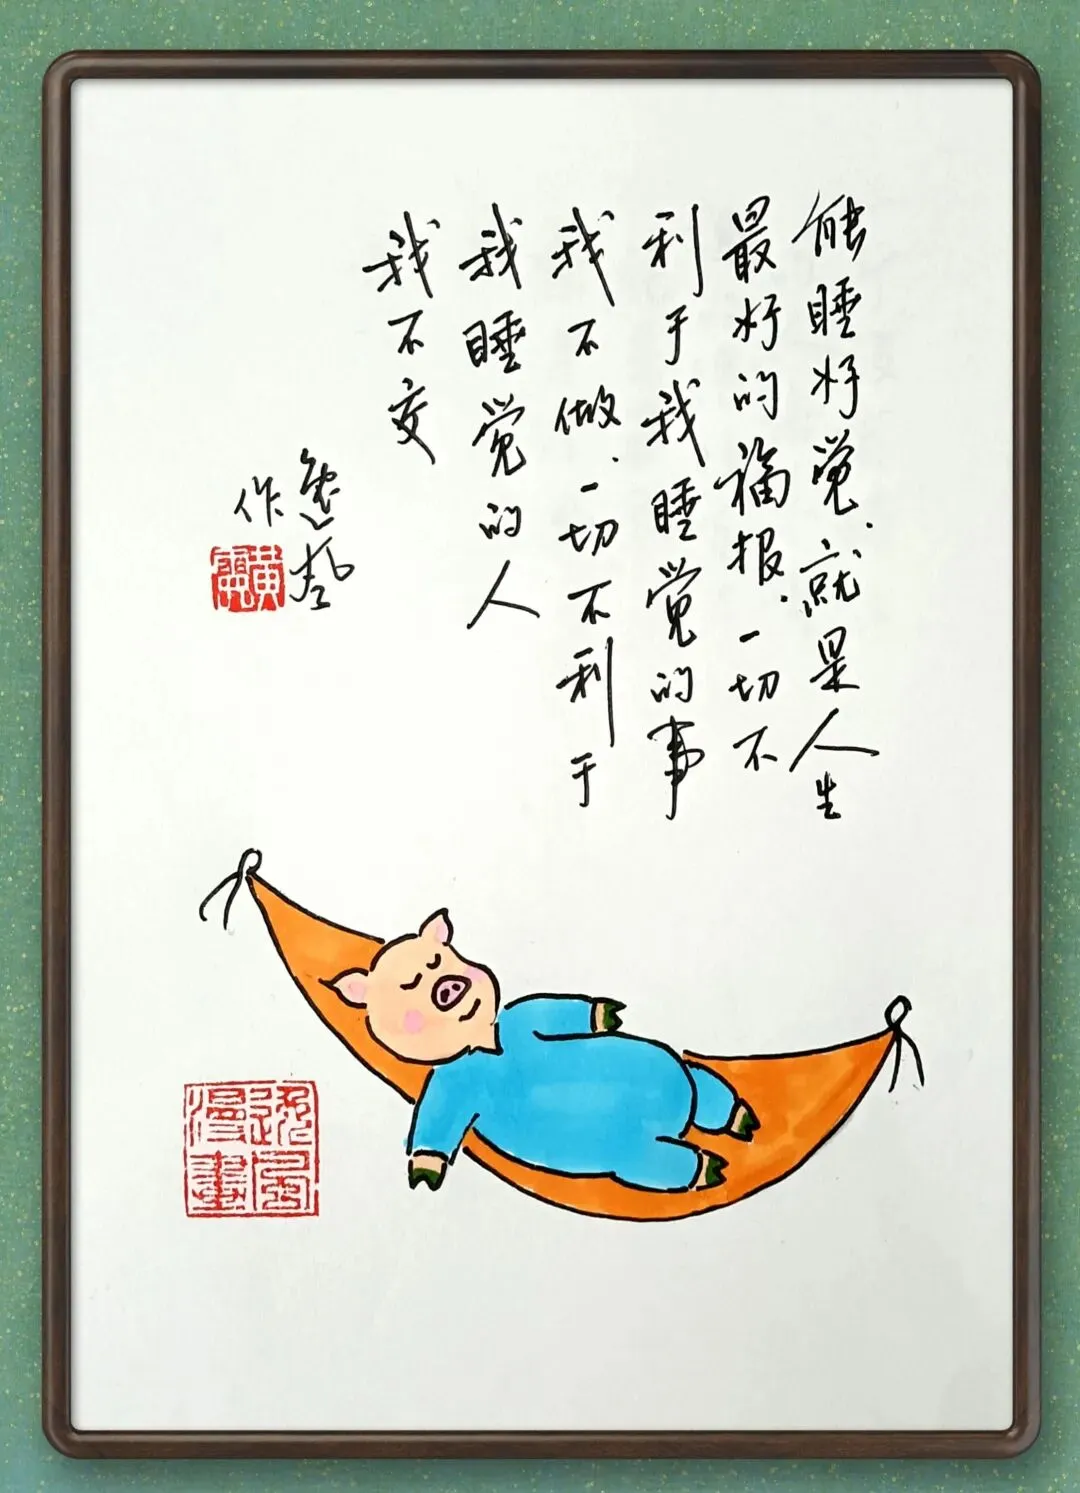 能睡好觉.就是人生
最好的福报.一切不
利于我睡觉的事
我不做.一切不利于
我睡觉的人
我不交
逸风
作
黄
漫畫